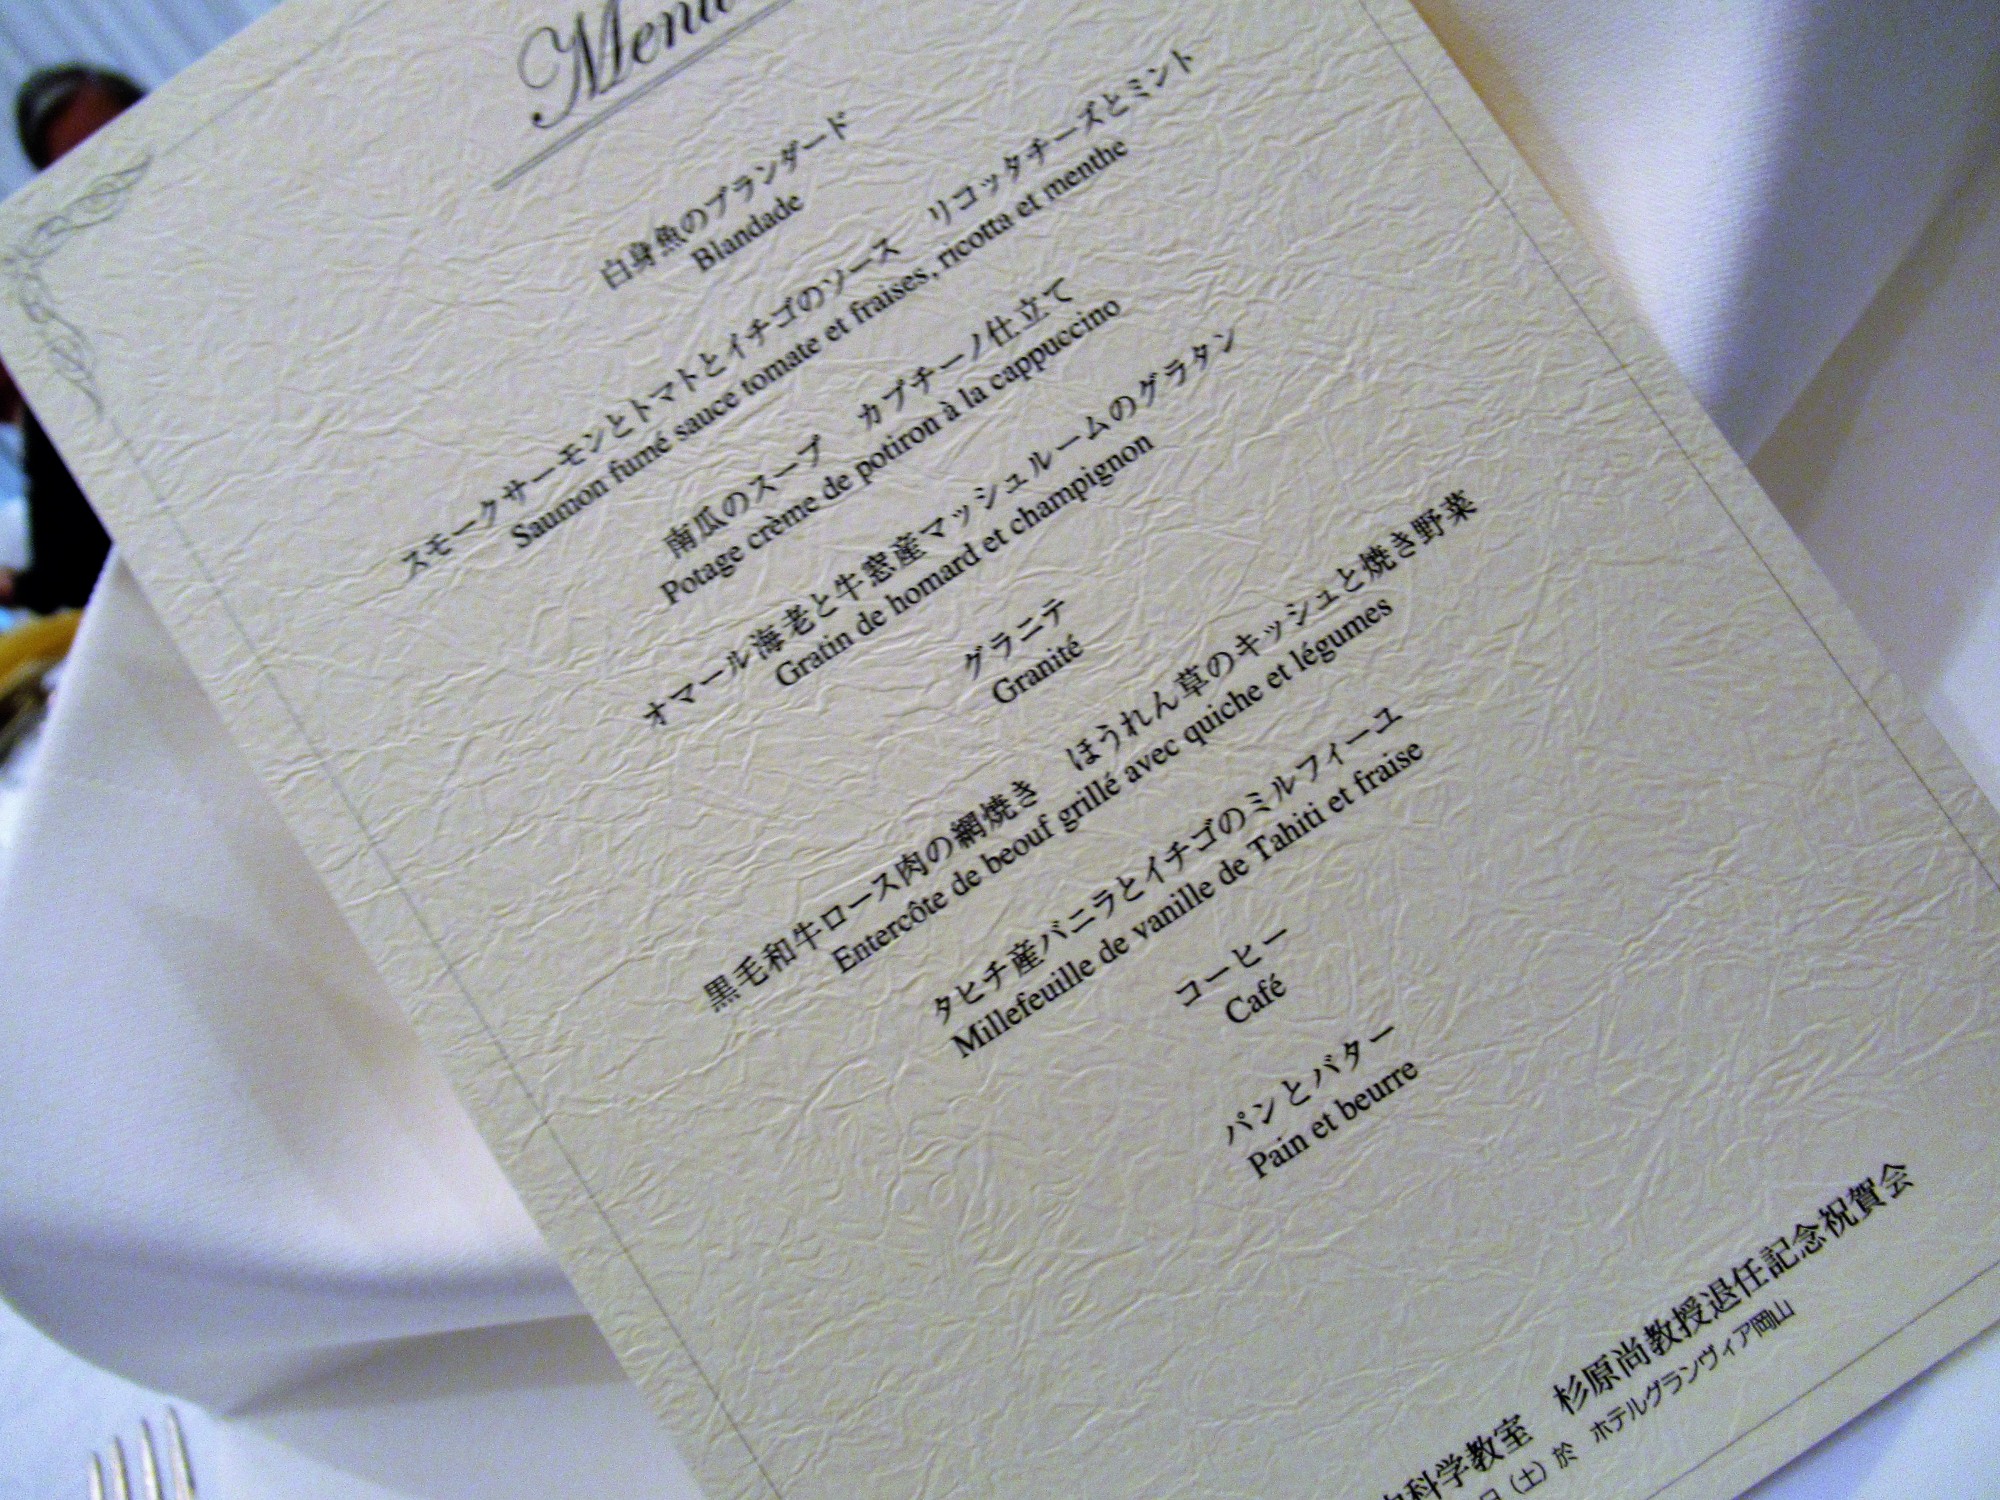 Menu
白身魚のブランダード
Blandade
スモークサーモンとトマトとイチゴのソース　リコッタチーズとミント
Saumon fumé sauce tomate et fraises, ricotta et menthe
南瓜のスープ　カプチーノ仕立て
Potage crème de potiron à la cappuccino
オマール海老と牛窓産マッシュルームのグラタン
Gratin de homard et champignon
グラニテ
Granité
黒毛和牛ロース肉の網焼き　ほうれん草のキッシュと焼き野菜
Entercôte de beouf grillé avec quiche et légumes
タヒチ産バニラとイチゴのミルフィーユ
Millefeuille de vanille de Tahiti et fraise
コーヒー
Café
パンとバター
Pain et beurre
科学教室　杉原尚教授退任記念祝賀会
日（土）於　ホテルグランヴィア岡山